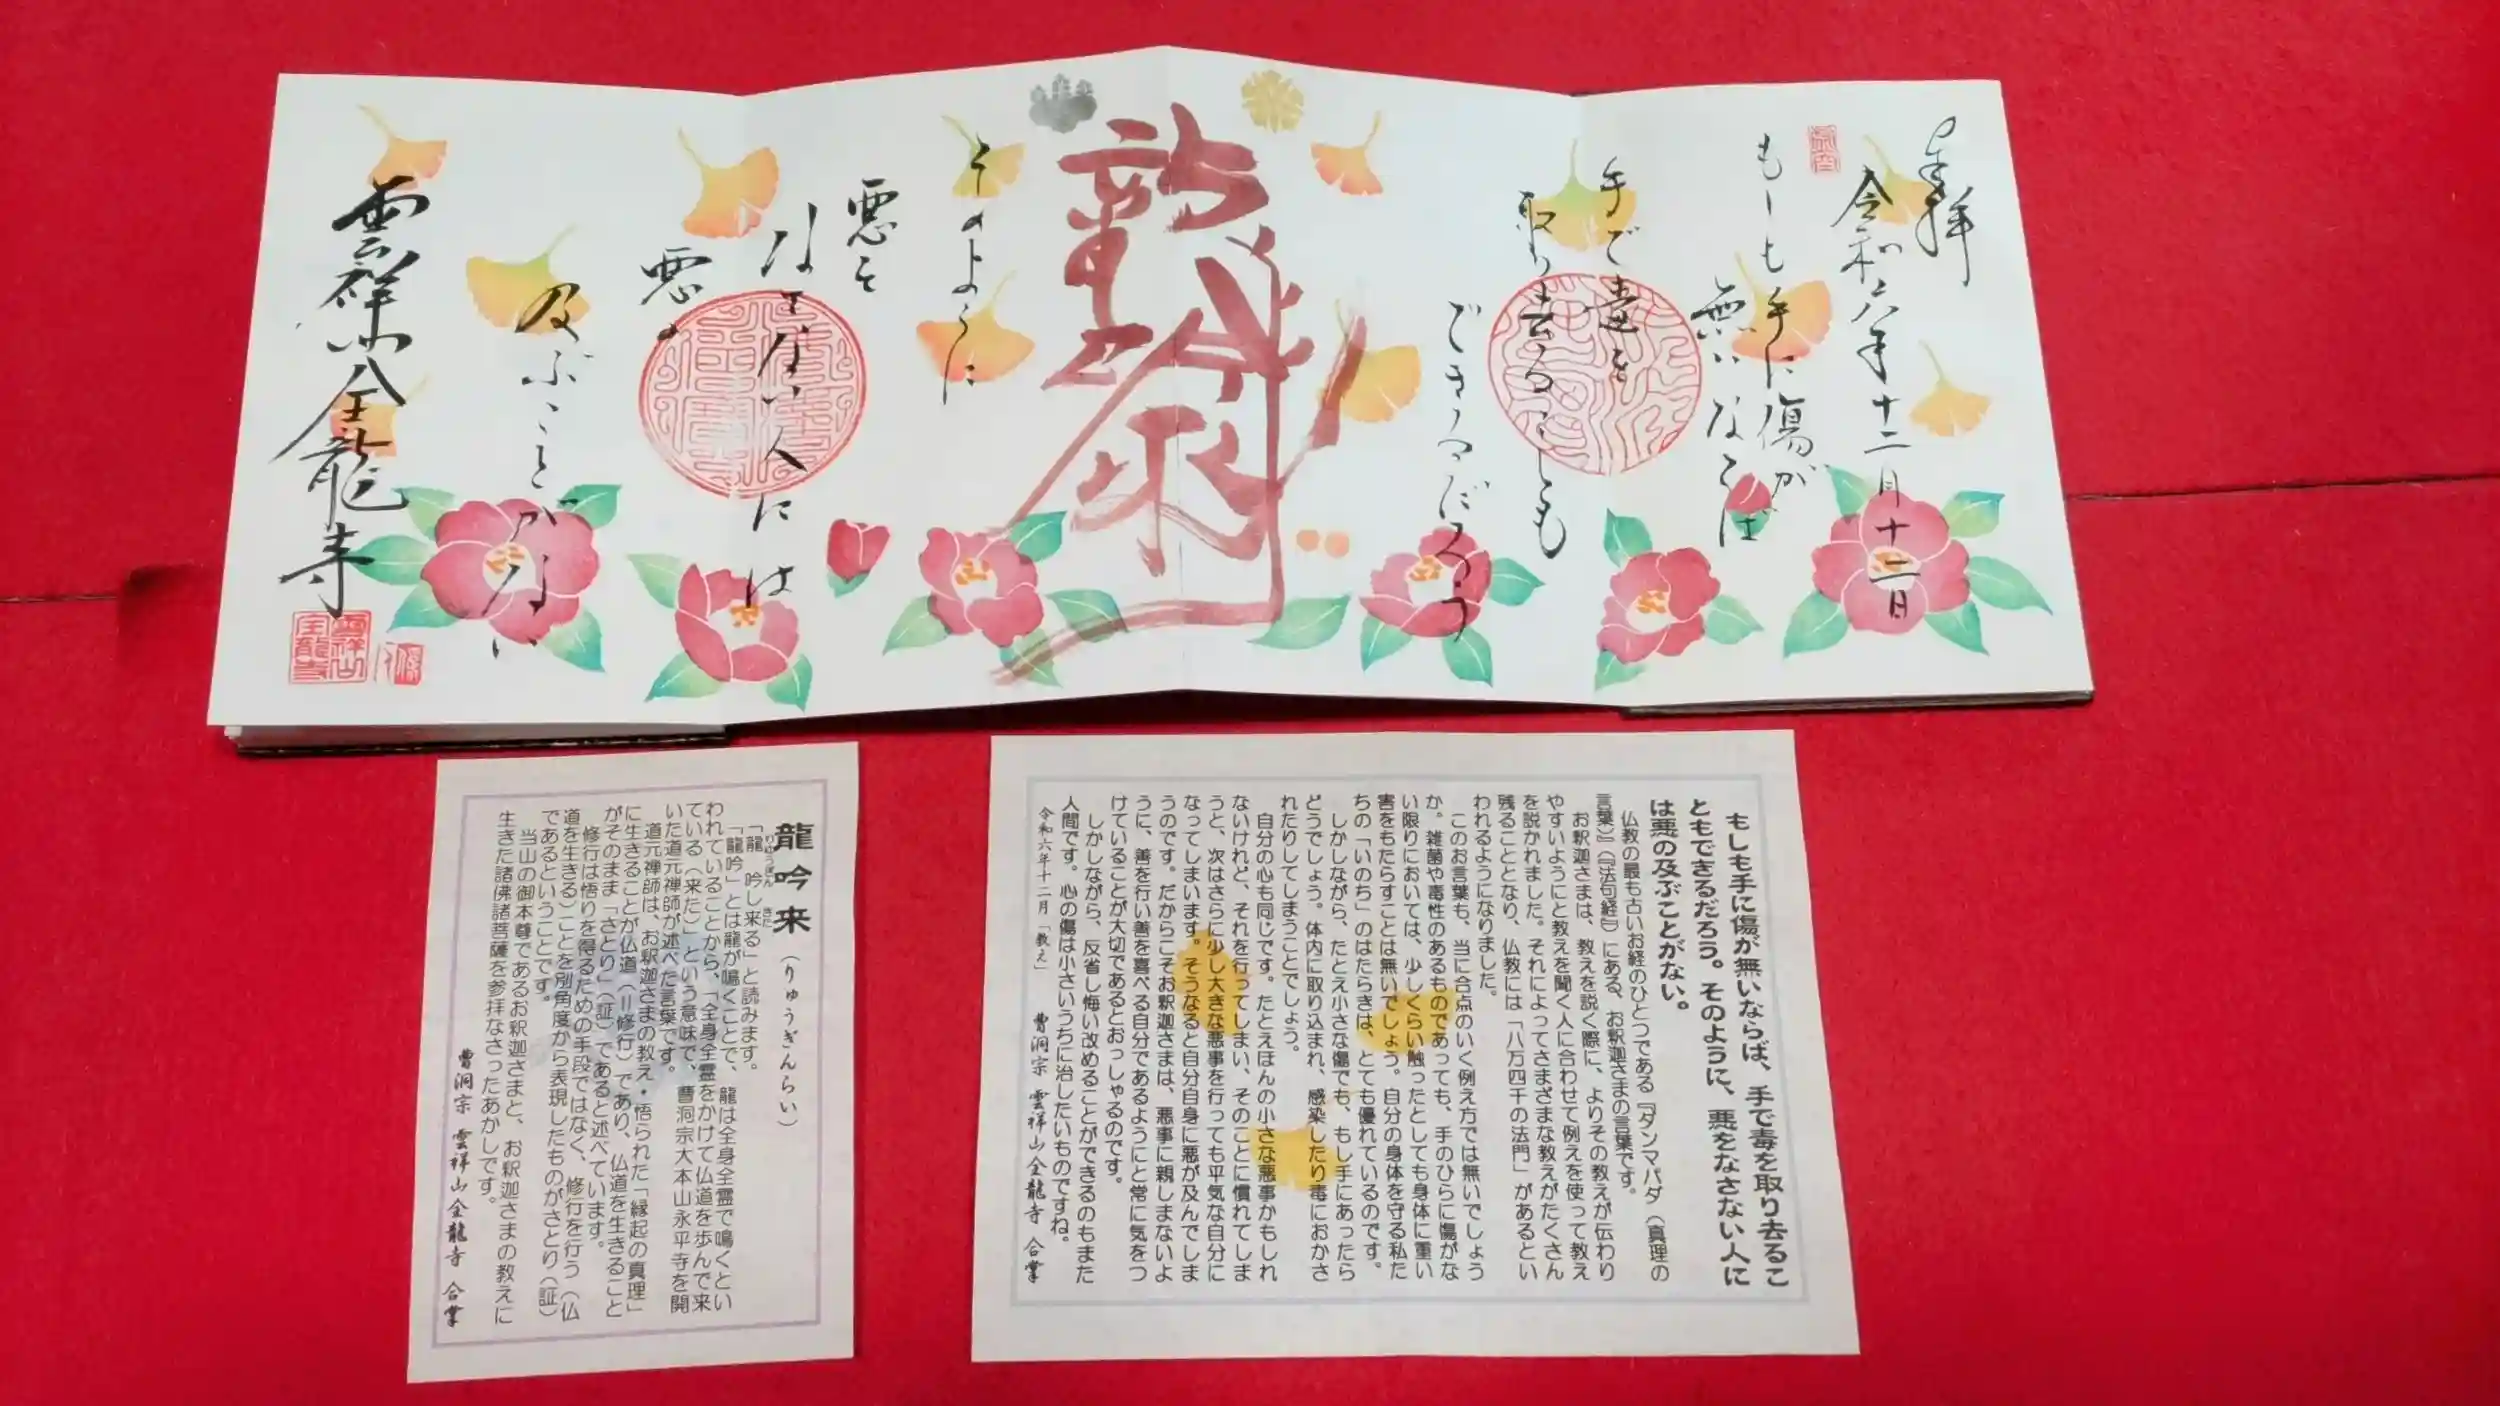 奉拝
令和六年十二月十二日
もしも手に傷が
無いならば
手で毒を
取り去ることも
できるだろう
龍吟来
そのように
悪を
なさない人には
悪の
及ぶことがない
雲祥山金龍寺
雲祥山
金龍寺
もしも手に傷が無いならば、手で毒を取り去るこ
ともできるだろう。そのように、悪をなさない人に
は悪の及ぶことがない。
仏教の最も古いお経のひとつである『ダンマパダ(真理の
言葉)』(『法句経』)にある、お釈迦さまの言葉です。
お釈迦さまは、教えを説く際に、よりその教えが伝わり
やすいようにと教えを聞く人に合わせて例えを使って教え
を説かれました。それによってさまざまな教えがたくさん
残ることとなり、仏教には「八万四千の法門」があるとい
われるようになりました。
このお言葉も、当に合点のいく例え方では無いでしょう
か。雑菌や毒性のあるものであっても、手のひらに傷がな
い限りにおいては、少しくらい触ったとしても身体に重い
害をもたらすことは無いでしょう。自分の身体を守る私た
ちの「いのち」のはたらきは、とても優れているのです。
しかしながら、たとえ小さな傷でも、もし手にあったら
どうでしょう。体内に取り込まれ、感染したり毒におかさ
れたりしてしまうことでしょう。
自分の心も同じです。たとえほんの小さな悪事かもしれ
ないけれど、それを行ってしまい、そのことに慣れてしま
うと、次はさらに少し大きな悪事を行っても平気な自分に
なってしまいます。そうなると自分自身に悪が及んでしま
うのです。だからこそお釈迦さまは、悪事に親しまないよ
うに、善を行い善を喜べる自分であるようにと常に気をつ
けていることが大切であるとおっしゃるのです。
しかしながら、反省し悔い改めることができるのもまた
人間です。心の傷は小さいうちに治したいものですね。
令和六年十二月「教え」 曹洞宗 雲祥山金龍寺 合掌
龍吟来(りゅうぎんらい)
「龍 吟し来る」と読みます。
「龍吟」とは龍が鳴くことで、龍は全身全霊で鳴くとい
われていることから、「全身全霊をかけて仏道を歩んで来
ている(来た)」という意味で、曹洞宗大本山永平寺を開
いた道元禅師が述べた言葉です。
道元禅師は、お釈迦さまの教え・悟られた「縁起の真理」
に生きることが仏道(=修行)であり、仏道を生きること
がそのまま「さとり」(証)であると述べています。
修行は悟りを得るための手段ではなく、修行を行う(仏
道を生きる)ことを別角度から表現したものがさとり(証)
であるということです。
当山の御本尊であるお釈迦さまと、お釈迦さまの教えに
生きた諸佛諸菩薩を参拝なさったあかしです。
曹洞宗 雲祥山金龍寺 合掌